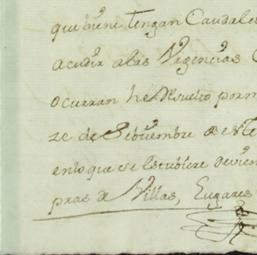 que tiene tengan Caudale
acudir a las Urgencias
ocurran he Resuelto por m
ze de Septiembre de
en lo que se estubiere devien
pras de Villas, Lugares